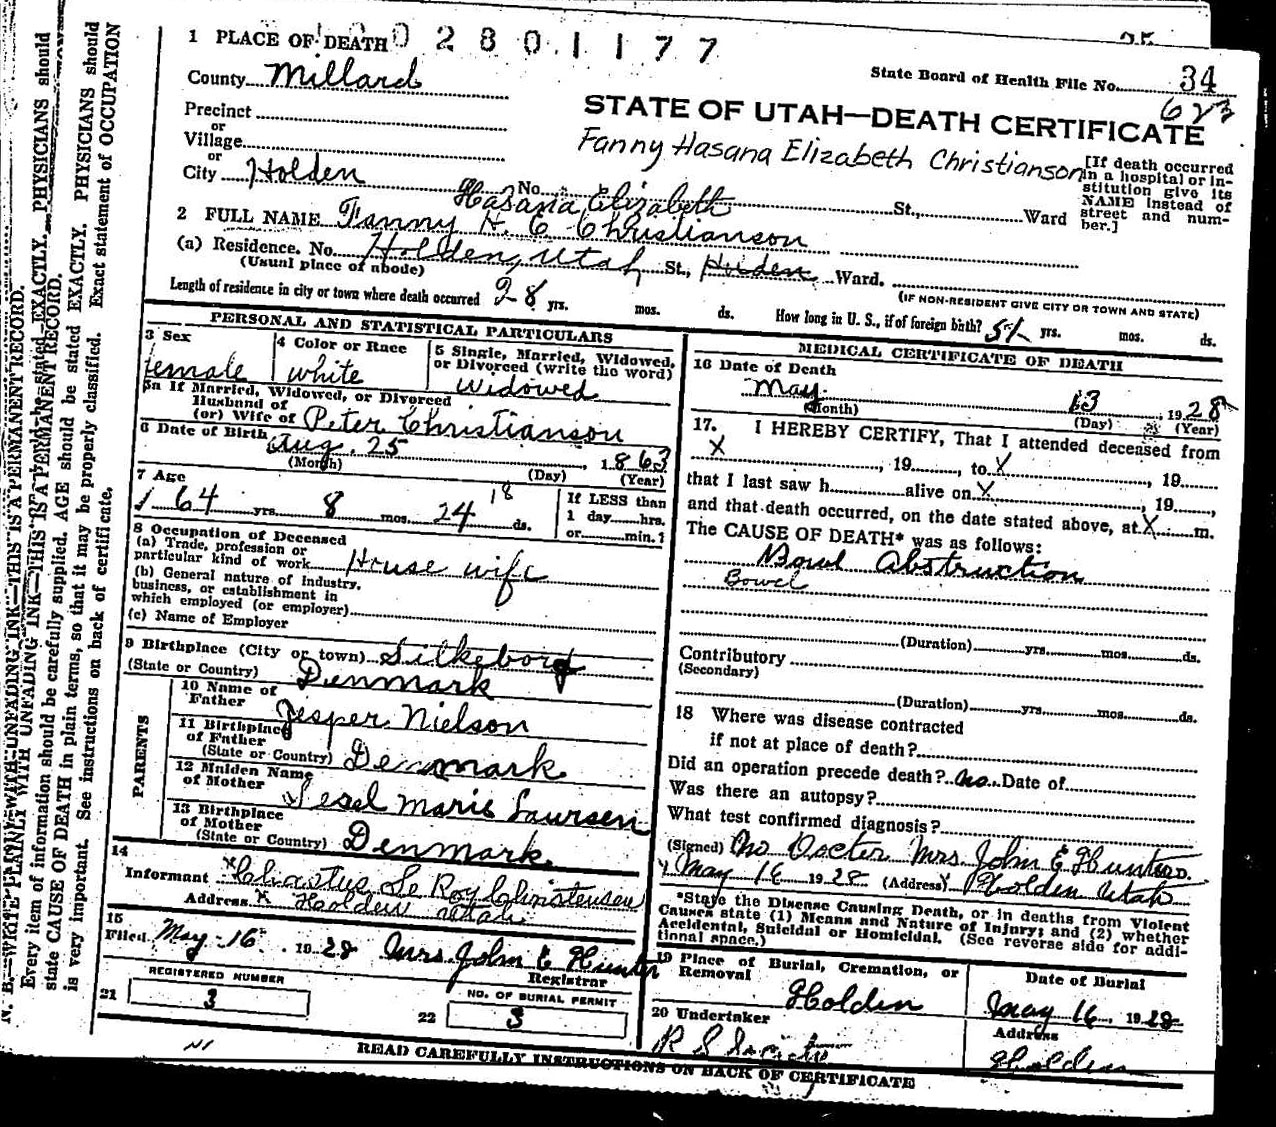 1 PLACE OF DEATH 0 2 8 0 1 1 7 7
State Board of Health File No. 34
623
County Millard
STATE OF UTAH—DEATH CERTIFICATE
Precinct
or
Village
or
City Holden
Fanny Hasana Elizabeth Christianson
[If death occurred
in a hospital or in-
stitution give its
NAME instead of
street and num-
ber.]
No. St., Ward
Hasana Elizabeth
2 FULL NAME Fanny H. E. Christianson
(a) Residence. No. Holden, Utah St., Holden Ward.
(Usual place of abode)
(IF NON-RESIDENT GIVE CITY OR TOWN AND STATE)
Length of residence in city or town where death occurred 28 yrs. mos. ds. How long in U. S., if of foreign birth? 51 yrs. mos. ds.
PERSONAL AND STATISTICAL PARTICULARS
3 Sex
female
4 Color or Race
white
5 Single, Married, Widowed,
or Divorced (write the word)
Widowed
5a If Married, Widowed, or Divorced
Husband of
(or) Wife of Peter Christianson
6 Date of Birth Aug. 25, 1863
(Month) (Day) (Year)
7 Age
64 yrs. 8 mos. 24 18 ds.
If LESS than
1 day hrs.
or min.?
8 Occupation of Deceased
(a) Trade, profession or
particular kind of work House wife
(b) General nature of industry,
business, or establishment in
which employed (or employer)
(c) Name of Employer
9 Birthplace (City or town) Silkeborg
(State or Country) Denmark
PARENTS
10 Name of
Father Jesper Nielson
11 Birthplace
of Father
(State or Country) Denmark
12 Maiden Name
of Mother Sesel Marie Laursen
13 Birthplace
of Mother
(State or Country) Denmark
14
Informant Le Roy Christensen
Address x Holden Utah
15
Filed May 16, 1928 Mrs. John E Hunter
Registrar
REGISTERED NUMBER
21 3
NO. OF BURIAL PERMIT
22 3
MEDICAL CERTIFICATE OF DEATH
16 Date of Death
May 13, 1928
(Month) (Day) (Year)
17. I HEREBY CERTIFY, That I attended deceased from
X , 19 , to X , 19
that I last saw h alive on X , 19 ,
and that death occurred, on the date stated above, at X m.
The CAUSE OF DEATH* was as follows:
Bowl Abstruction
Bowel
(Duration) yrs. mos. ds.
Contributory
(Secondary)
(Duration) yrs. mos. ds.
18 Where was disease contracted
if not at place of death?
Did an operation precede death? No Date of
Was there an autopsy?
What test confirmed diagnosis?
(Signed) No Docter Mrs John E Hunter M.D.
May 16 1928 (Address) Holden Utah
*State the Disease Causing Death, or in deaths from Violent
Causes state (1) Means and Nature of Injury; and (2) whether
Accidental, Suicidal or Homicidal. (See reverse side for addi-
tional space.)
19 Place of Burial, Cremation, or
Removal Holden
Date of Burial
May 16, 1928
20 Undertaker
R S Society
Address
Holden
READ CAREFULLY INSTRUCTIONS ON BACK OF CERTIFICATE
N. B.—WRITE PLAINLY WITH UNFADING INK—THIS IS A PERMANENT RECORD.
Every item of information should be carefully supplied. AGE should be stated EXACTLY. PHYSICIANS should
state CAUSE OF DEATH in plain terms, so that it may be properly classified. Exact statement of OCCUPATION
is very important. See instructions on back of certificate,